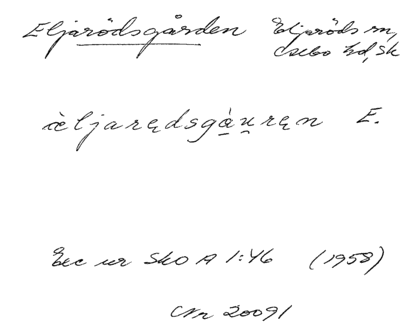 Eljarödsgården Eljaröds sn,
Csebo hd, Sk
èljarędsgá̱u̮ręn E.
Exc ur SkO A 1:46 (1958)
Nr 20091